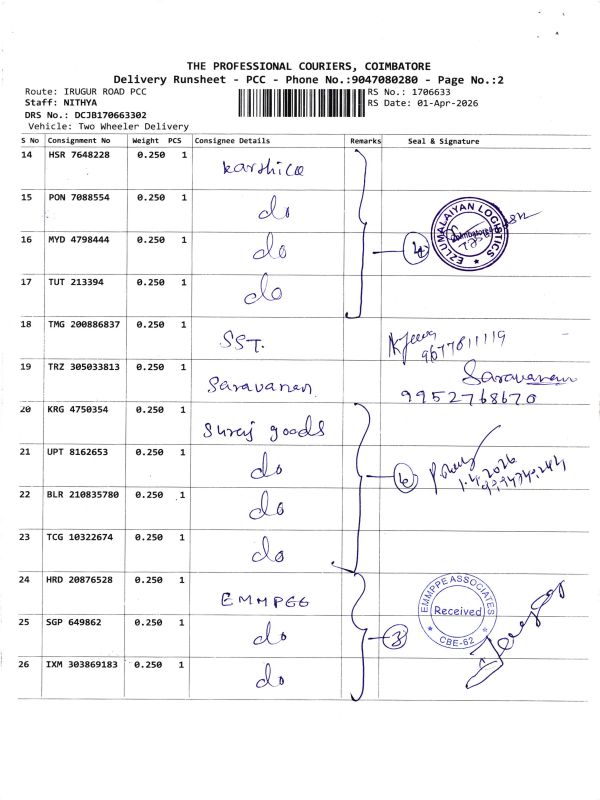 THE PROFESSIONAL COURIERS, COIMBATORE
Delivery Runsheet - PCC - Phone No.:9047080280 - Page No.:2
Route: IRUGUR ROAD PCC
RS No.: 1706633
Staff: NITHYA
RS Date: 01-Apr-2026
DRS No.: DCJB170663302
Vehicle: Two Wheeler Delivery
S No Consignment No Weight PCS Consignee Details Remarks Seal & Signature
14 HSR 7648228 0.250 1
15 PON 7088554 0.250 1 do
16 MYD 4798444 0.250 1 do
EZLUMALAIYAN LOGISTICS
Coimbatore
17 TUT 213394 0.250 1 do
18 TMG 200886837 0.250 1 SST.
9677811119
19 TRZ 305033813 0.250 1 Saravanan
Saravanan
9952768670
20 KRG 4750354 0.250 1 Suraj goods
21 UPT 8162653 0.250 1 do
1.4.2026
22 BLR 210835780 0.250 1 do
23 TCG 10322674 0.250 1 do
24 HRD 20876528 0.250 1
EMMPPE ASSOCIATES
Received
CBE-62
25 SGP 649862 0.250 1 do
3
26 IXM 303869183 0.250 1 do